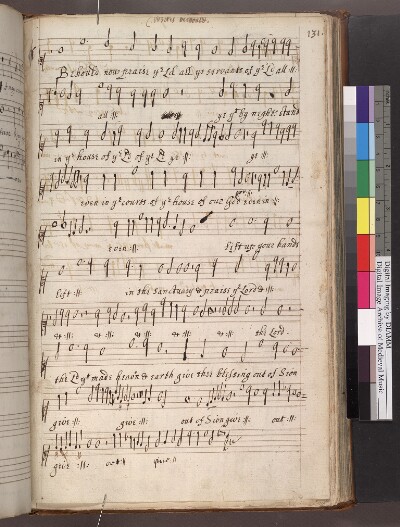 131.
Behould now praise yͤ Ld all ye servants of yͤ Ld all :||:
all :||: ye yͭ by night stand
in yͤ house of yͤ Ld of yͤ Ld ye :||: ye :||:
even in yͤ courts of yͤ house of our God even in :||:
even :||: lift up your hands
lift :||: in the sanctuary & praise yͤ Lord & :||:
& :||: & :||: & :||: & :||: the Lord.
the Ld yͭ made heavn & earth give thee blessing out of Sion
give :||: give :||: out of Sion give :||: out :||:
give :||: out :||: give :||:
Digital Imaging by DIAMM
Digital Image Archive of Medieval Music